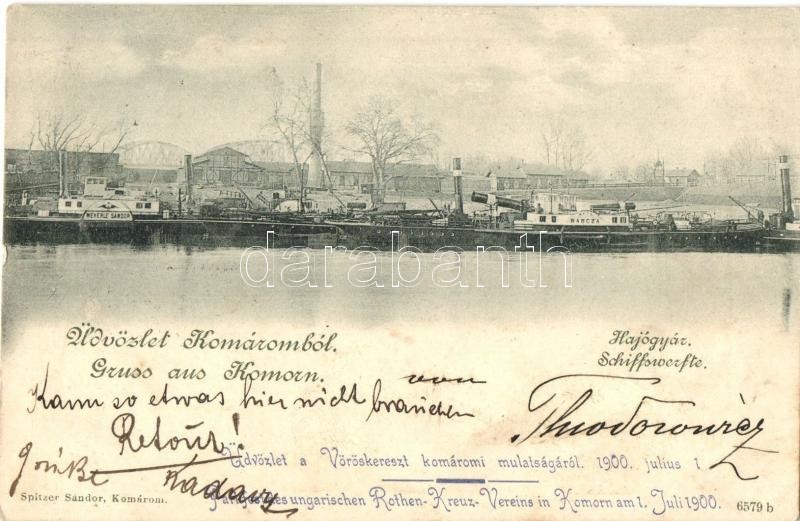 WEKERLE SÁNDOR
BABCZA
darabanth
Üdvözlet Komáromból.
Gruss aus Komorn.
Hajógyár.
Schiffswerfte.
Kann so etwas hier nicht brauchen
Retour!
Theodorovicz
Üdvözlet a Vöröskereszt komáromi mulatságáról. 1900. julius 1
ungarischen Rothen-Kreuz-Vereins in Komorn am 1. Juli 1900.
Spitzer Sándor, Komárom.
6579 b